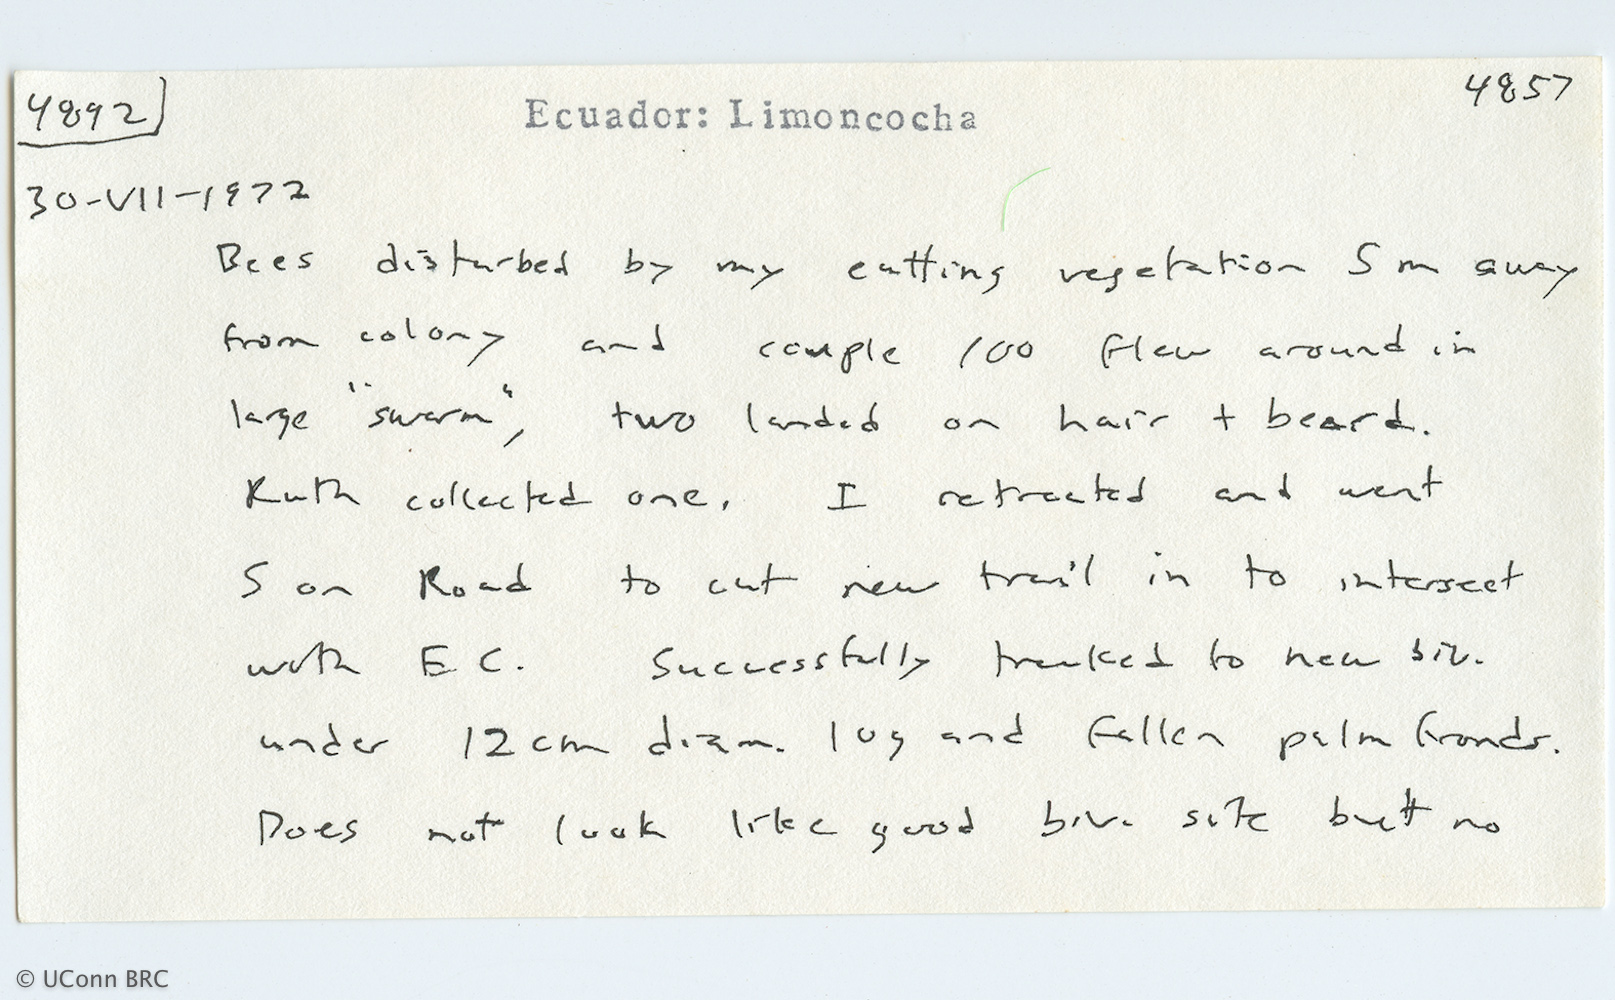 4892
Ecuador: Limoncocha
4857
30-VII-1972
Bees disturbed by my cutting vegetation 5 m away
from colony and couple 100 flew around in
large "swarm", two landed on hair + beard.
Ruth collected one. I retreated and went
S on Road to cut new trail in to intersect
with E C. Successfully tracked to new biv.
under 12 cm diam. log and fallen palm fronds.
Does not look like good biv. site but no
© UConn BRC